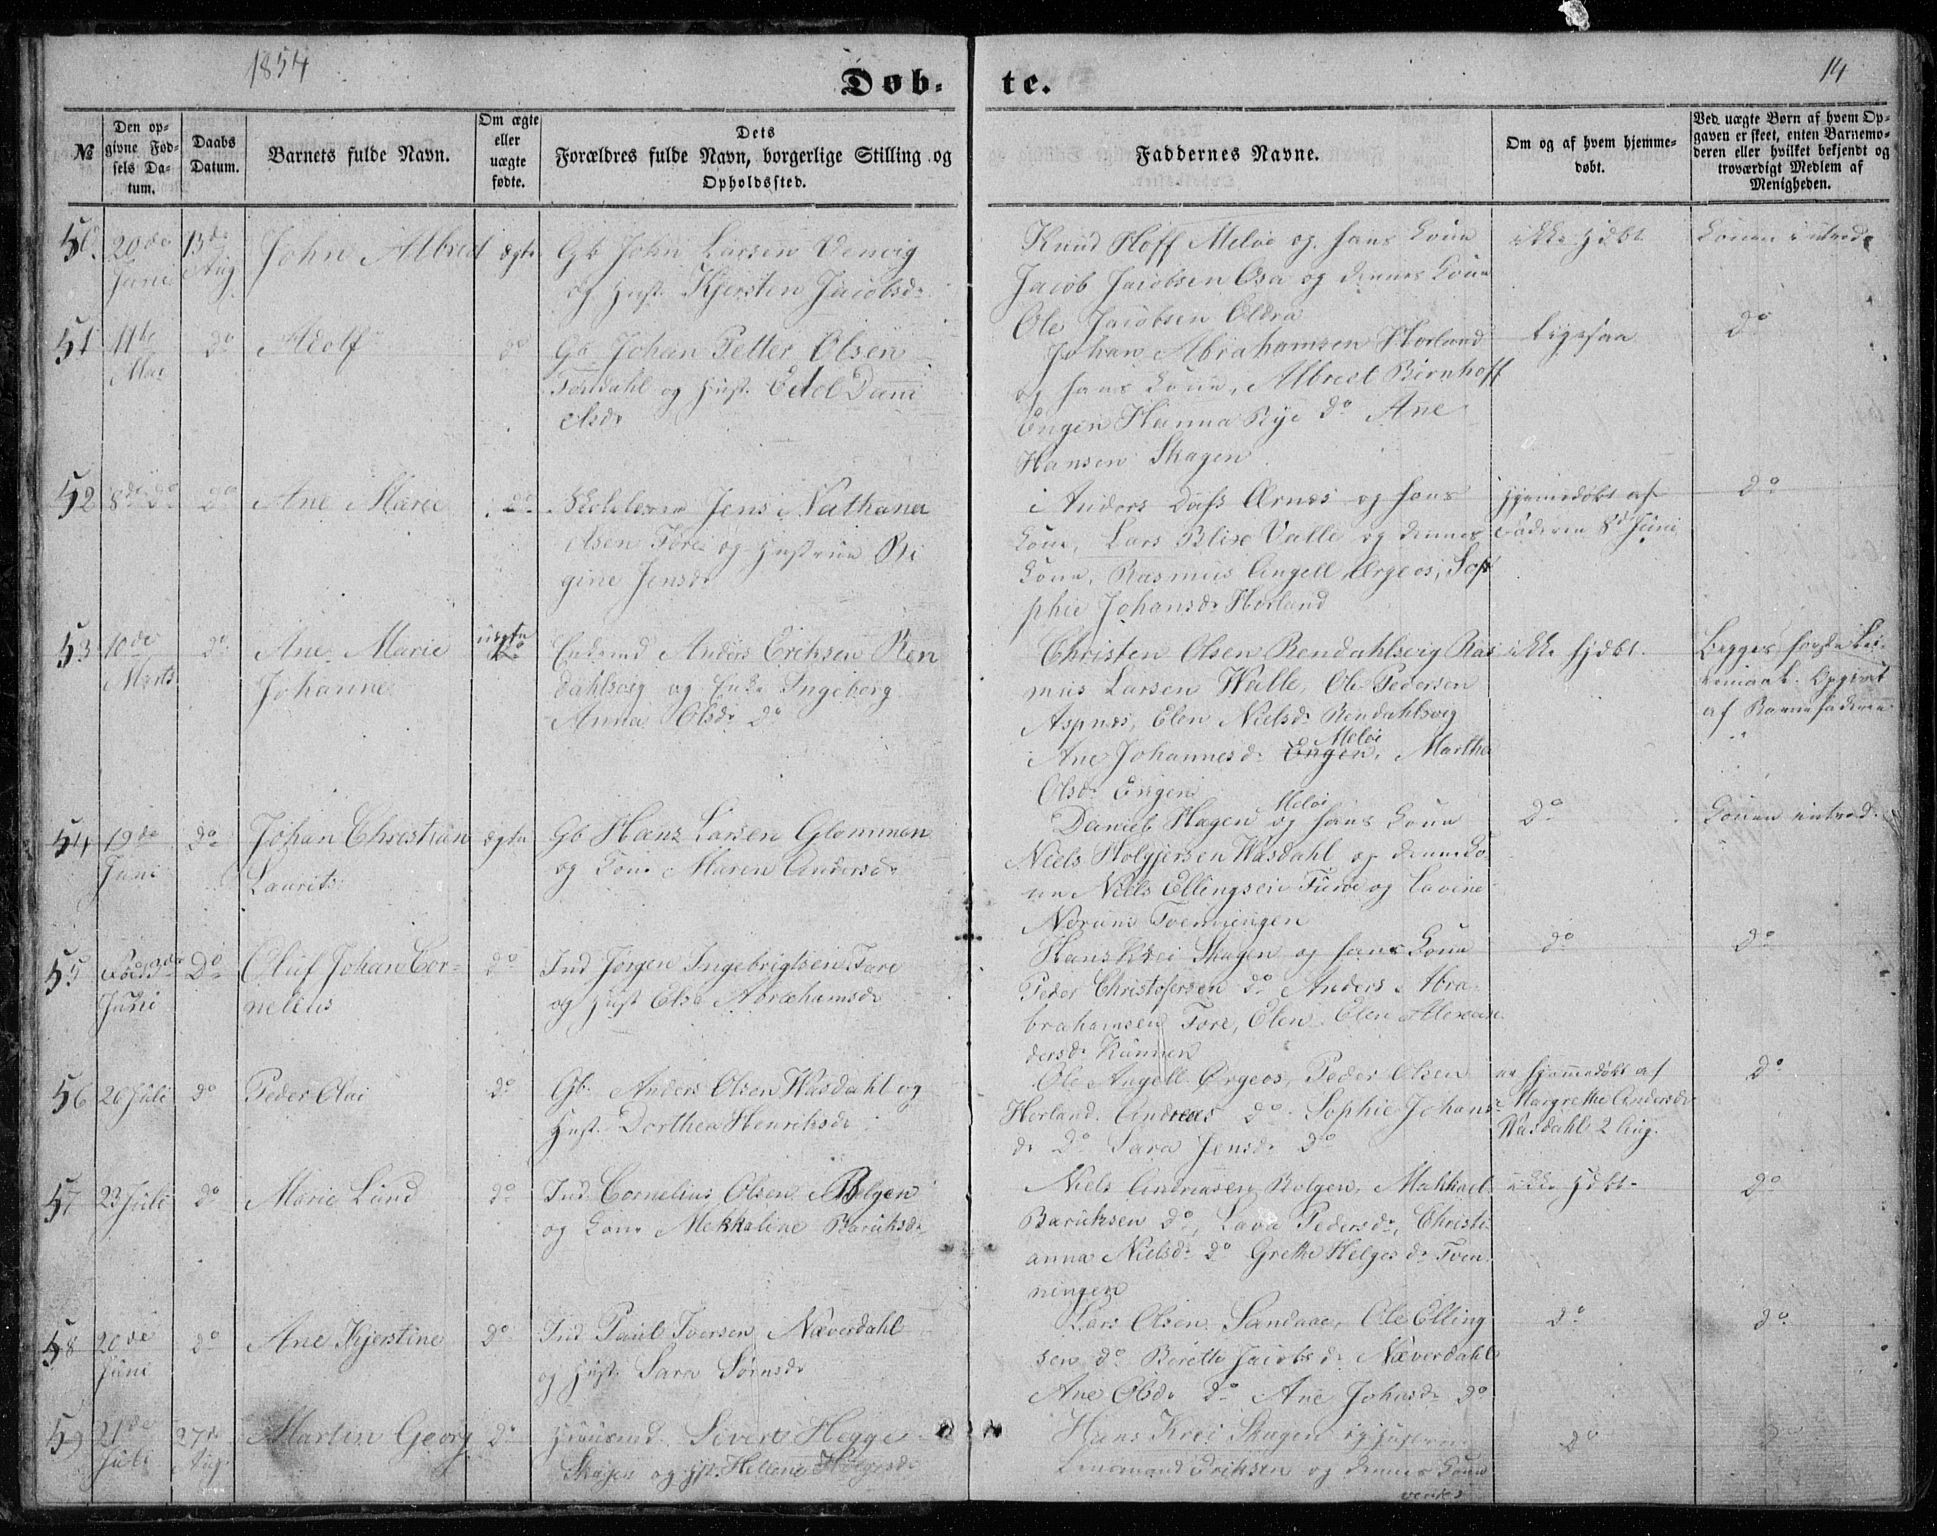 1854
Døb-
te.
14
№
Den op-
givne Fød-
sels Da-
tum.
Daabs
Datum.
Barnets fulde Navn.
Om ægte
eller
uægte
fødte.
Dets
Forældres fulde Navn, borgerlige Stilling og
Opholdssted.
Faddernes Navne.
Om og af hvem hjemme-
døbt.
Ved uægte Børn af hvem Op-
gaven er skeet, enten Barnemo-
deren eller hvilket bekjendt og
troværdigt Medlem af
Menigheden.
50. 20de
Juni
13de
Aug
John Albret
ægte
Gb John Larsen Venvig
og Hust. Kjersten Jacobsdr
Knud Hoff Meløe og hans Kone
Jacob Jacobsen Osa og dennes Kone
Ole Jacobsen Oldra
ikke Hjdbt
Konen introd.
51
11te
Mai
do
Adolf
do
Gb. Johan Petter Olsen
Tondahl og Hust. Edel Dani
elsdr
Johan Abrahamsen Horland
og hans Kone, Albrect Birnhoff
Engen Hanna Rye do Ane
Hansen Skagen
Ligesaa
do
52
8de do
do
Ane Marie
do
Jens Nathanael
Olsen Fore og Hustrue Re
gine Jensdr
Anders Dass Ørnes og hans
Kone, Lars Blix Valle og dennes
Kone, Rasmus Angell Ørgeos, So
phie Johansdr Horland
Hjemmedøbt af
Faderen 8d Juni
do
53
10de
Marts
do
Ane Marie
Johanne
uægte
Anders Eriksen Ren
dahlsvig og Enke Ingeborg
Anna Olsdr do
Christen Olsen Rendahlsvig Ras
mus Larsen Walle, Ole Pedersen
Aspnes, Elen Nielsdr Rendahlsvig
Meløe
Ane Johannesdr Engen, Martha
Olsdr Engen
ikke hjdbt.
Begges første Lei-
ermaal. Opgivet
af Barnefaderen
54
19de
Juni
do
Johan Christian
Laurits
ægte
Gb Hans Larsen Glommen
og Kone Maren Andersdr
Meløe
Daniel Hagen og hans Kone
Niels Holgjersen Wasdahl og dennes Ko-
ne Niels Ellingsen Ture og Lovine
Tvenningen
do
Konen introd.
55
3de
Juni
do
Oluf Johan Cor-
nelius
do
Ind Jørgen Ingebrigtsen Fore
og Hust Else Abrahamsdr
Hans Krei Skagen og hans Kone
Peder Christofersen do Anders Abra-
brahamsen Fore, Elen Elen Alexan
dersdr Kunnen
do
do
56
26 Juli
do
Peder Olai
do
Gb. Anders Olsen Wasdahl og
Hust. Dorthea Henriksdr
Ole Angell Ørgeos, Peder Olsen
Horland. Andreas do Sophie Johans
dr do Sara Jensdr do
er hjemmedøbt af
Margrethe Andersdr
Wasdahl 2 Aug.
do
57
23 Juli
do
Marie Lund
do
Ind. Cornelius Olsen Bolgen
og Kone Mekkaline Baruksdr
Niels Andreasen Bolgen, Mekkael
Baruksen do, Lava Pedersdr, Christi
anna Nielsdr do Grethe Helgesdr Tven-
ningen
ikke Hjdbt.
do
58
20de
Juni
do
Ane Kjerstine
do
Ind Paul Iversen Næverdahl
og Hust. Sara Sørnsdr
Lars Olsen Sandaae, Ole Elling
sen do Berette Jacobsdr Næverdahl
Ane Olsdr do Ane Johnsdr do
do
do
59
21de
Juli
27de
Aug
Martin Georg
do
Huusmd. Sivert Hegge
Skagen og Hst. Hellene Helgesdr
Hans Krei Skagen og Hustrue
Lensmand Eriksen og dennes Kone
do
do